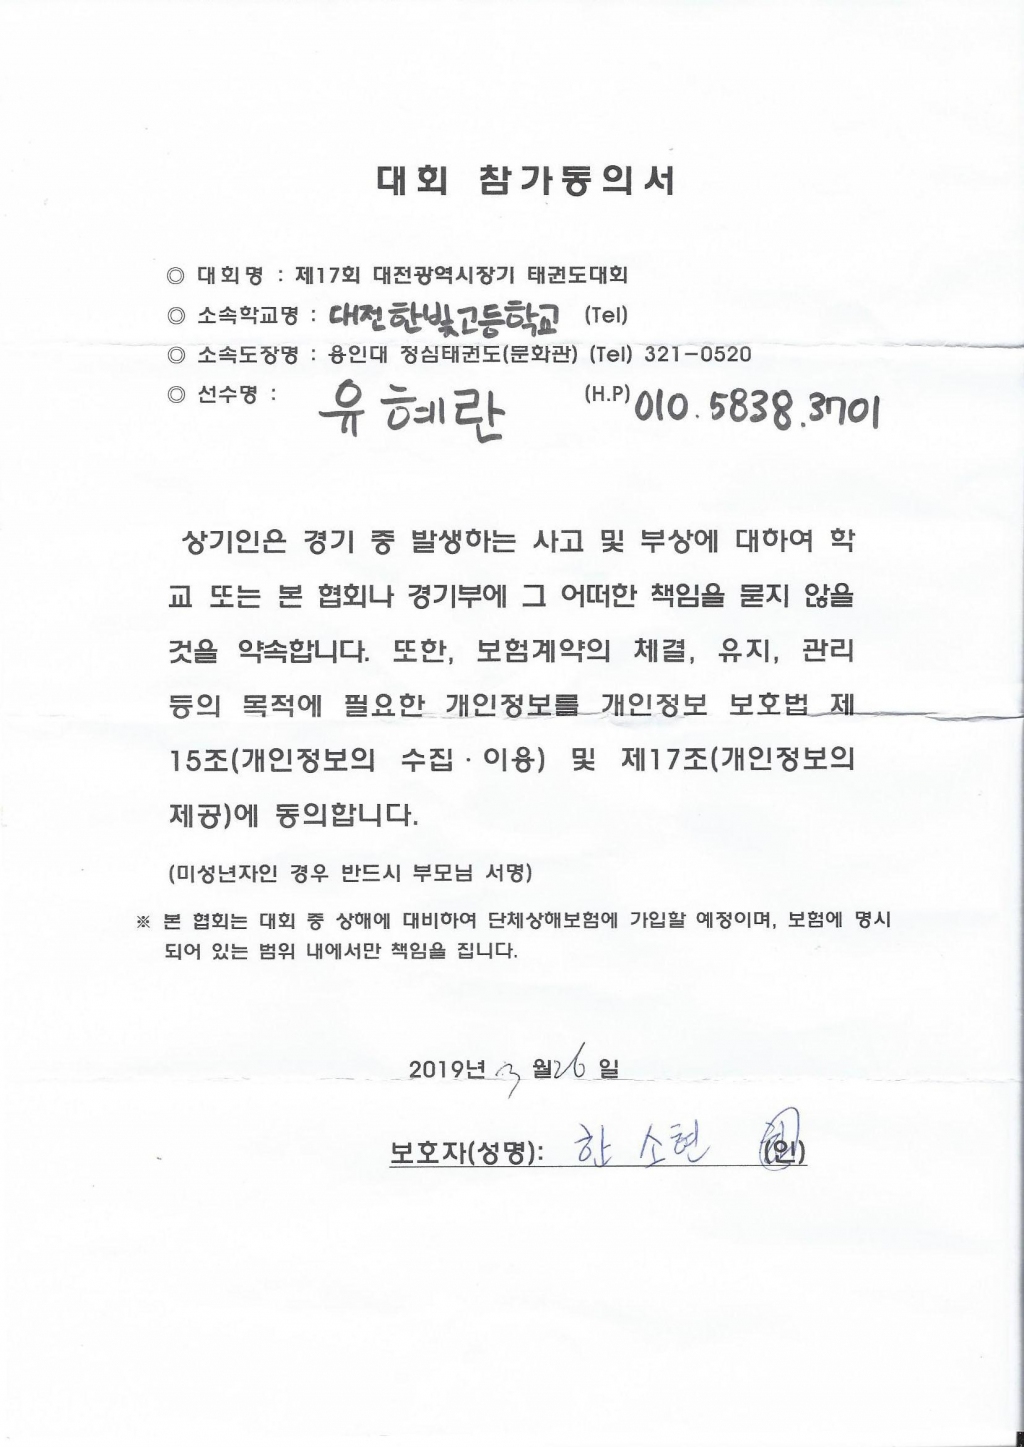 대회 참가동의서
◎ 대회명 : 제17회 대전광역시장기 태권도대회
◎ 소속학교명 : 대전한빛고등학교 (Tel)
◎ 소속도장명 : 용인대 정심태권도(문화관) (Tel) 321-0520
◎ 선수명 : 유혜란 (H.P) 010.5838.3701
상기인은 경기 중 발생하는 사고 및 부상에 대하여 학
교 또는 본 협회나 경기부에 그 어떠한 책임을 묻지 않을
것을 약속합니다. 또한, 보험계약의 체결, 유지, 관리
등의 목적에 필요한 개인정보를 개인정보 보호법 제
15조(개인정보의 수집·이용) 및 제17조(개인정보의
제공)에 동의합니다.
(미성년자인 경우 반드시 부모님 서명)
※ 본 협회는 대회 중 상해에 대비하여 단체상해보험에 가입할 예정이며, 보험에 명시
되어 있는 범위 내에서만 책임을 집니다.
2019년 3 월 26 일
보호자(성명): 한 소현 (인)